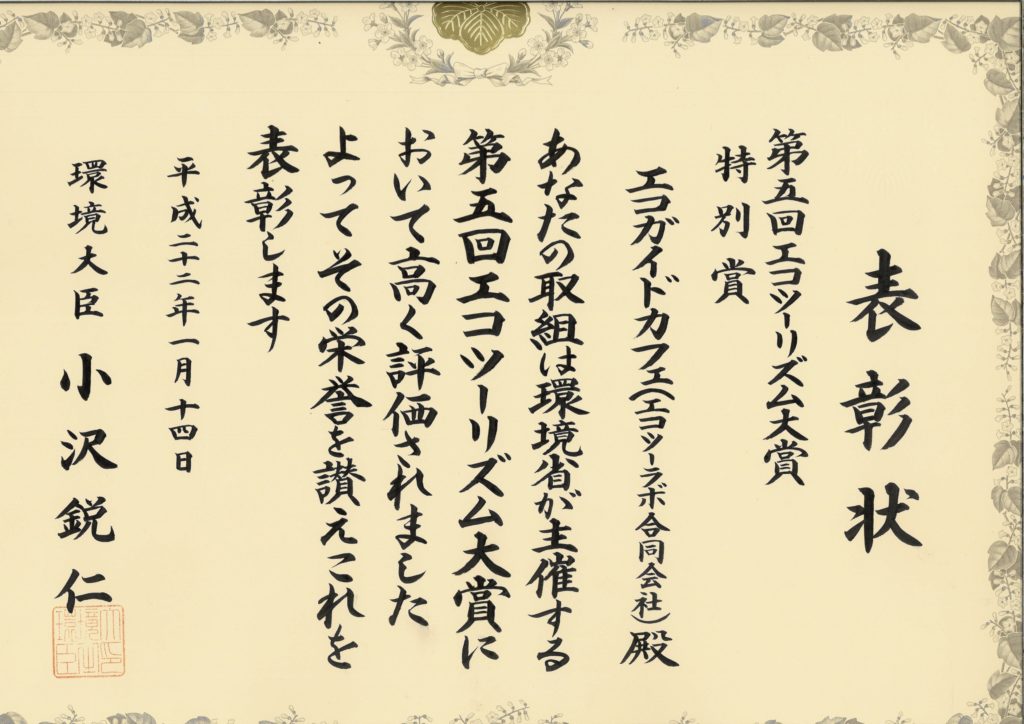 表彰状
第五回エコツーリズム大賞
特別賞
エコガイドカフェ(エコツーラボ合同会社)殿
あなたの取組は環境省が主催する
第五回エコツーリズム大賞に
おいて高く評価されました
よってその栄誉を讃えこれを
表彰します
平成二十二年一月十四日
環境大臣 小沢鋭仁
環境大臣之印